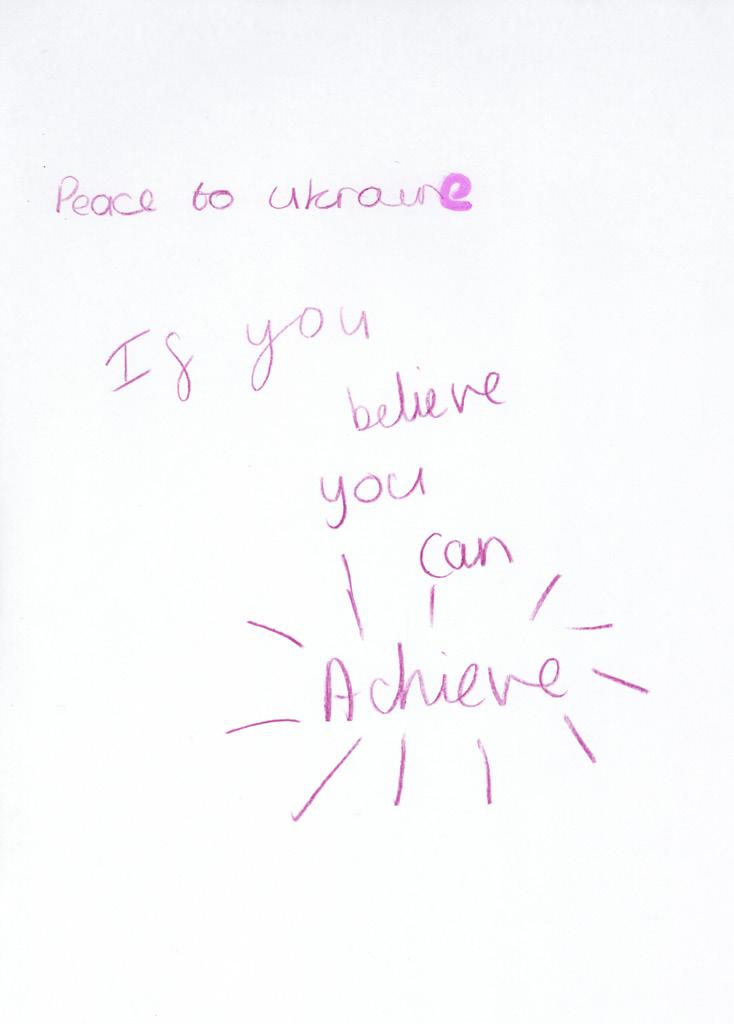 Peace to ukraine
If you
believe
you
can
Achieve